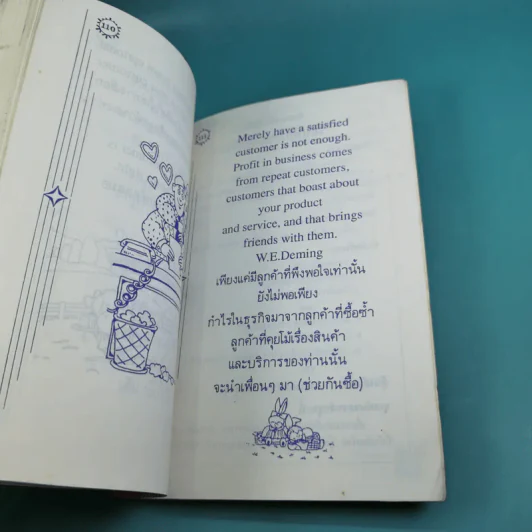 110
Merely have a satisfied
customer is not enough.
Profit in business comes
from repeat customers,
customers that boast about
your product
and service, and that brings
friends with them.
W.E.Deming
เพียงแค่มีลูกค้าที่พึงพอใจเท่านั้น
ยังไม่พอเพียง
กำไรในธุรกิจมาจากลูกค้าที่ซื้อซ้ำ
ลูกค้าที่คุยโม้เรื่องสินค้า
และบริการของท่านนั้น
จะนำเพื่อนๆ มา (ช่วยกันซื้อ)